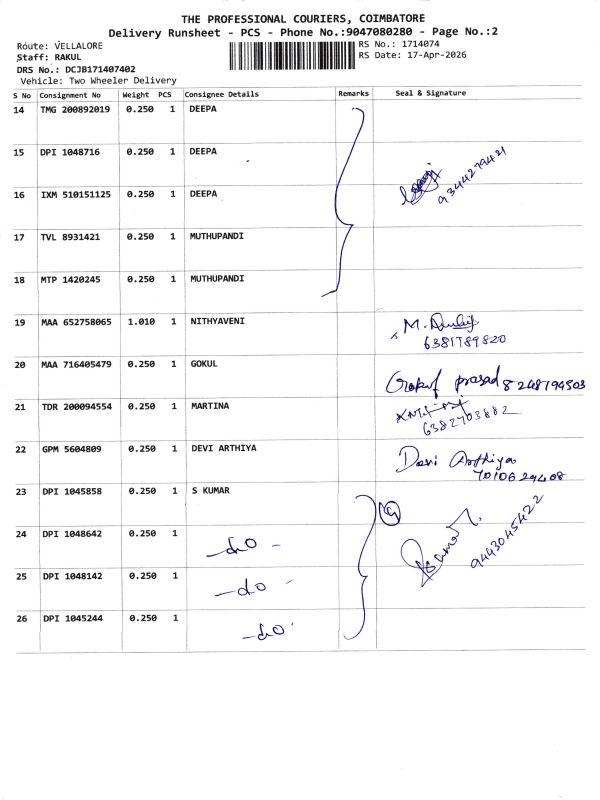 THE PROFESSIONAL COURIERS, COIMBATORE
Delivery Runsheet - PCS - Phone No.:9047080280 - Page No.:2
Route: VELLALORE
Staff: RAKUL
DRS No.: DCJB171407402
Vehicle: Two Wheeler Delivery
RS No.: 1714074
RS Date: 17-Apr-2026
S No Consignment No Weight PCS Consignee Details Remarks Seal & Signature
14 TMG 200892019 0.250 1 DEEPA
15 DPI 1048716 0.250 1 DEEPA
9344279421
16 IXM 510151125 0.250 1 DEEPA
17 TVL 8931421 0.250 1 MUTHUPANDI
18 MTP 1420245 0.250 1 MUTHUPANDI
19 MAA 652758065 1.010 1 NITHYAVENI M.
6381789820
20 MAA 716405479 0.250 1 GOKUL Gokul prasad 8248194503
21 TDR 200094554 0.250 1 MARTINA
6382703882
22 GPM 5604809 0.250 1 DEVI ARTHIYA Devi Arthiya
7010629408
23 DPI 1045858 0.250 1 S KUMAR 4
24 DPI 1048642 0.250 1 -do-
9443045422
25 DPI 1048142 0.250 1 -do-
26 DPI 1045244 0.250 1 -do